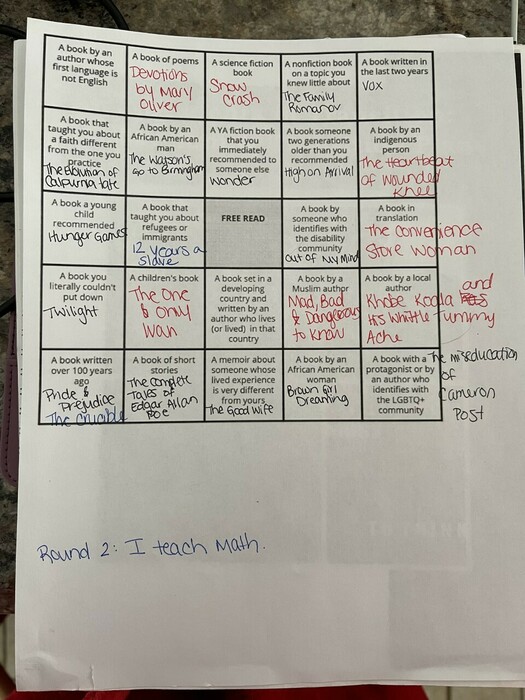 A book by an
author whose
first language is
not English
A book of poems
Devotions
by Mary
Oliver
A science fiction
book
Snow
Crash
A nonfiction book
on a topic you
knew little about
The Family
Romanov
A book written in
the last two years
Vox
A book that
taught you about
a faith different
from the one you
practice
The Evolution of
Calpurnia tate
A book by an
African American
man
The Watson's
go to Birmingham
A YA fiction book
that you
immediately
recommended to
someone else
Wonder
A book someone
two generations
older than you
recommended
High on Arrival
A book by an
indigenous
person
The Heartbeat
of Wounded
Knee
A book a young
child
recommended
Hunger Games
A book that
taught you about
refugees or
immigrants
12 years a
slave
FREE READ
A book by
someone who
identifies with
the disability
community
Out of My Mind
A book in
translation
The Convenience
Store Woman
A book you
literally couldn't
put down
Twilight
A children's book
The One
& Only
Ivan
A book set in a
developing
country and
written by an
author who lives
(or lived) in that
country
A book by a
Muslim author
Mad, Bad
& Dangerous
to Know
A book by a local
author
Khobe Koala and
His Whittle Tummy
Ache
A book written
over 100 years
ago
Pride &
Prejudice
The Crucible
A book of short
stories
The Complete
Tales of
Edgar Allan
Poe
A memoir about
someone whose
lived experience
is very different
from yours
The Good Wife
A book by an
African American
woman
Brown Girl
Dreaming
A book with a
protagonist or by
an author who
identifies with
the LGBTQ+
community
The miseducation
of
Cameron
Post
Round 2: I teach Math.